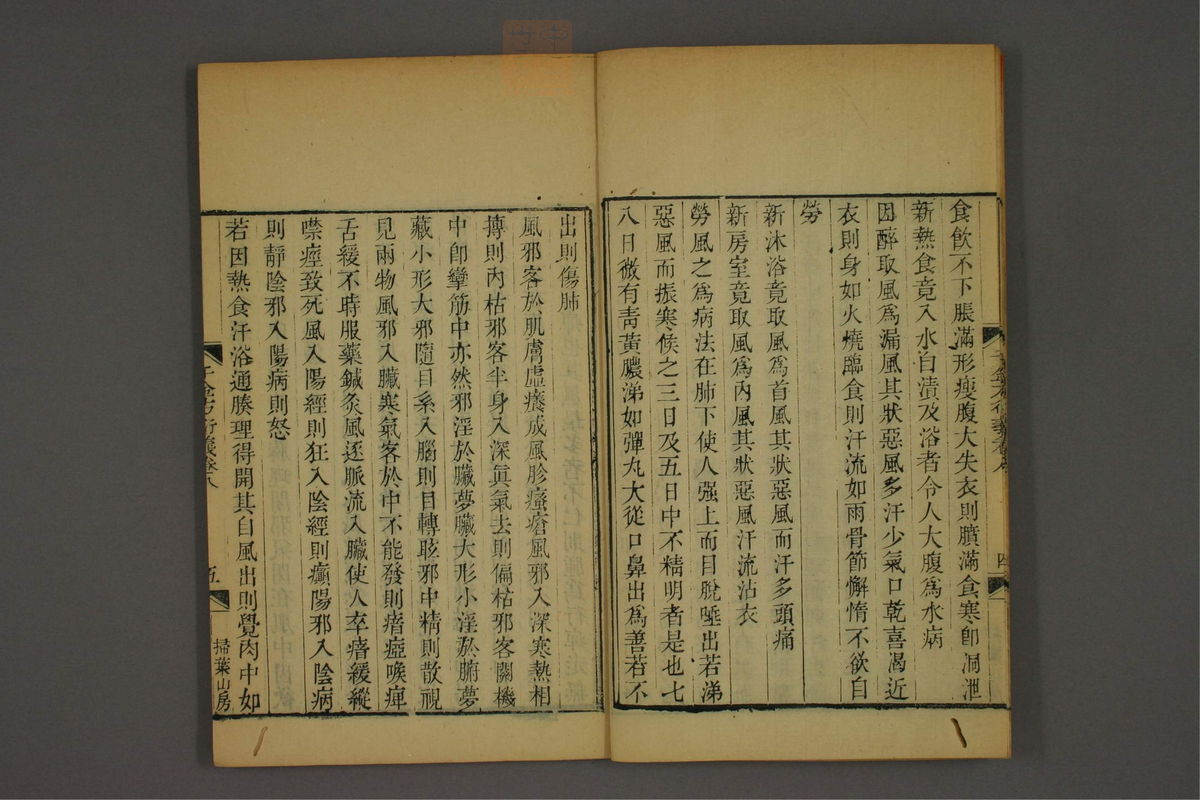 食飲不下脹滿形瘦腹大失衣則䐜滿食寒卽洞泄
新熱食竟入水自漬及浴者令人大腹爲水病
因醉取風爲漏風其狀惡風多汗少氣口乾喜渴近
衣則身如火燒臨食則汗流如雨骨節懈惰不欲自
勞
新沐浴竟取風爲首風其狀惡風而汗多頭痛
新房室竟取風爲內風其狀惡風汗流沾衣
勞風之爲病法在肺下使人强上而目脫唾出若涕
惡風而振寒候之三日及五日中不精明者是也七
八日微有靑黃膿涕如彈丸大從口鼻出爲善若不
千金方衍義卷八
四
出則傷肺
風邪客於肌膚虛癢成風胗瘙瘡風邪入深寒熱相
摶則肉枯邪客半身入深眞氣去則偏枯邪客關機
中卽攣筋中亦然邪淫於臟夢臟大形小淫於腑夢
藏小形大邪隨目系入腦則目轉眩邪中精則散視
見兩物風邪入臟寒氣客於中不能發則瘖瘂喉痺
舌緩不時服藥鍼灸風逐脈流入臟使人卒瘖緩縱
噤痙致死風入陽經則狂入陰經則癲陽邪入陰病
則靜陰邪入陽病則怒
若因熱食汗浴通腠理得開其自風出則覺肉中如
千金方衍義卷八
五
掃葉山房